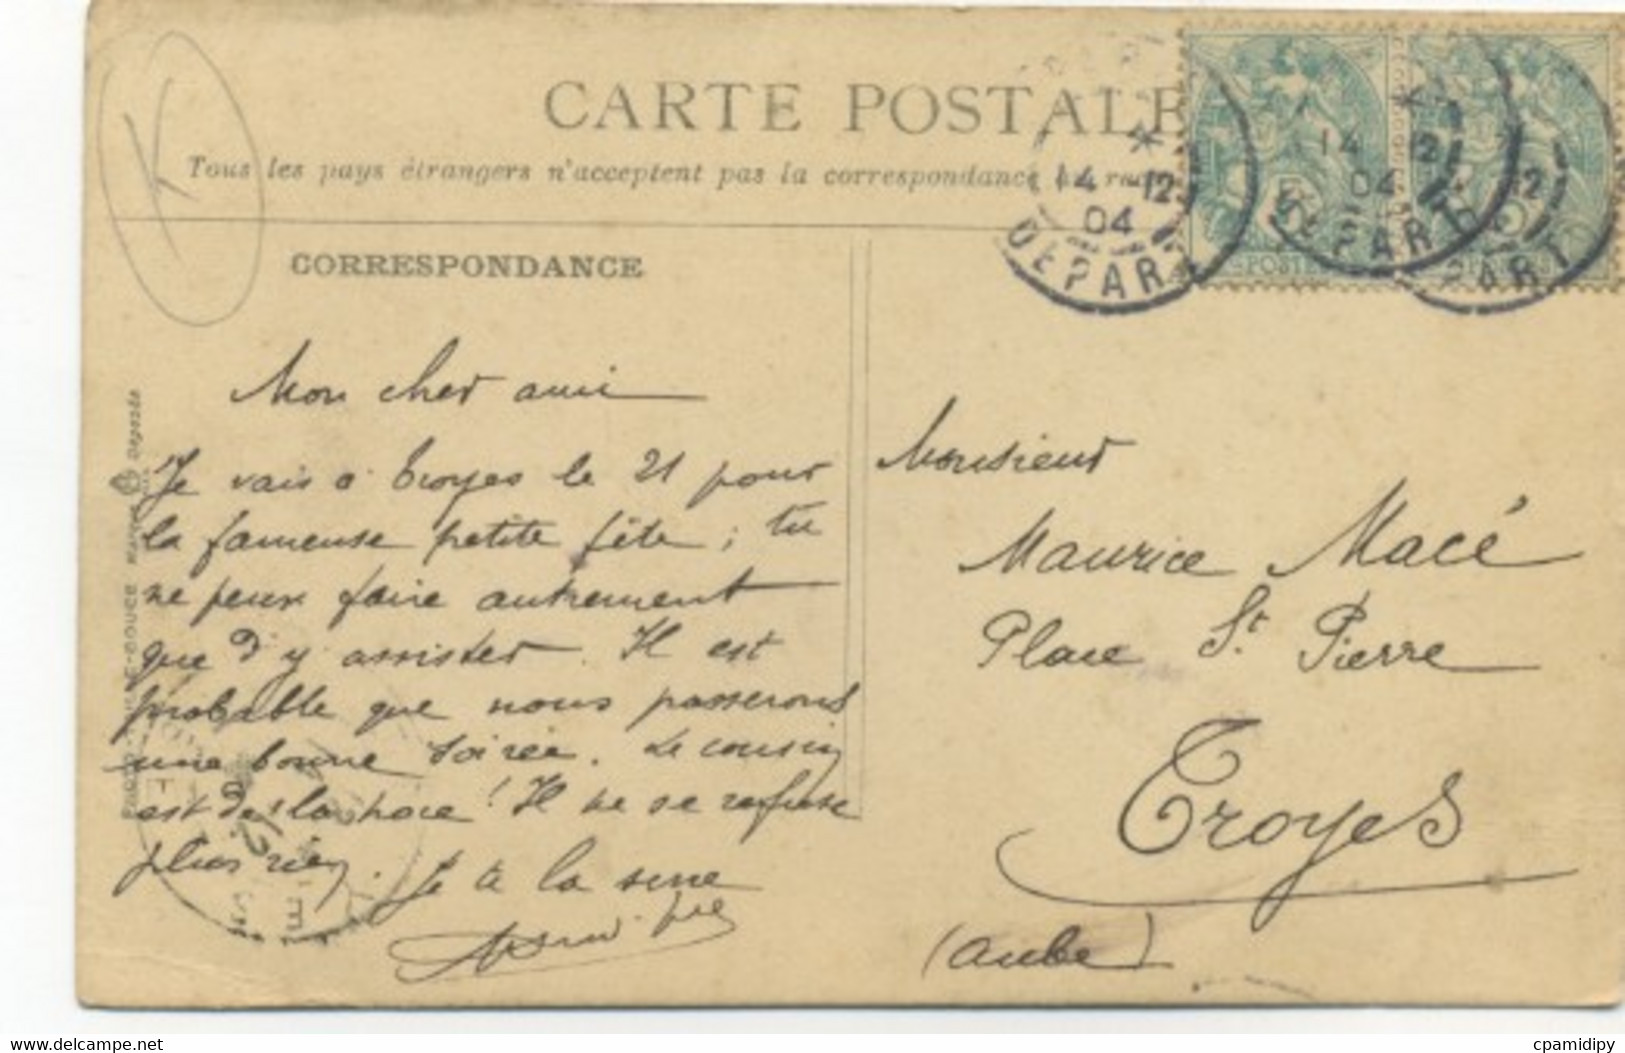 CARTE POSTALE
Tous les pays étrangers n'acceptent pas la correspondance au
14 12
04
DEPART
14 12
04
DEPART
12
PART
POSTES
CORRESPONDANCE
Mon cher ami
Je vais à Troyes le 21 pour
la fameuse petite fête ; tu
ne peux faire autrement
que d'y assister. Il est
probable que nous passerons
une bonne soirée. Le cousin
est de la noce ! Il ne se refuse
plus rien. Je te la serre
Monsieur
Maurice Macé
Place St Pierre
Troyes
(Aube)
K
delcampe.net
cpamidipy